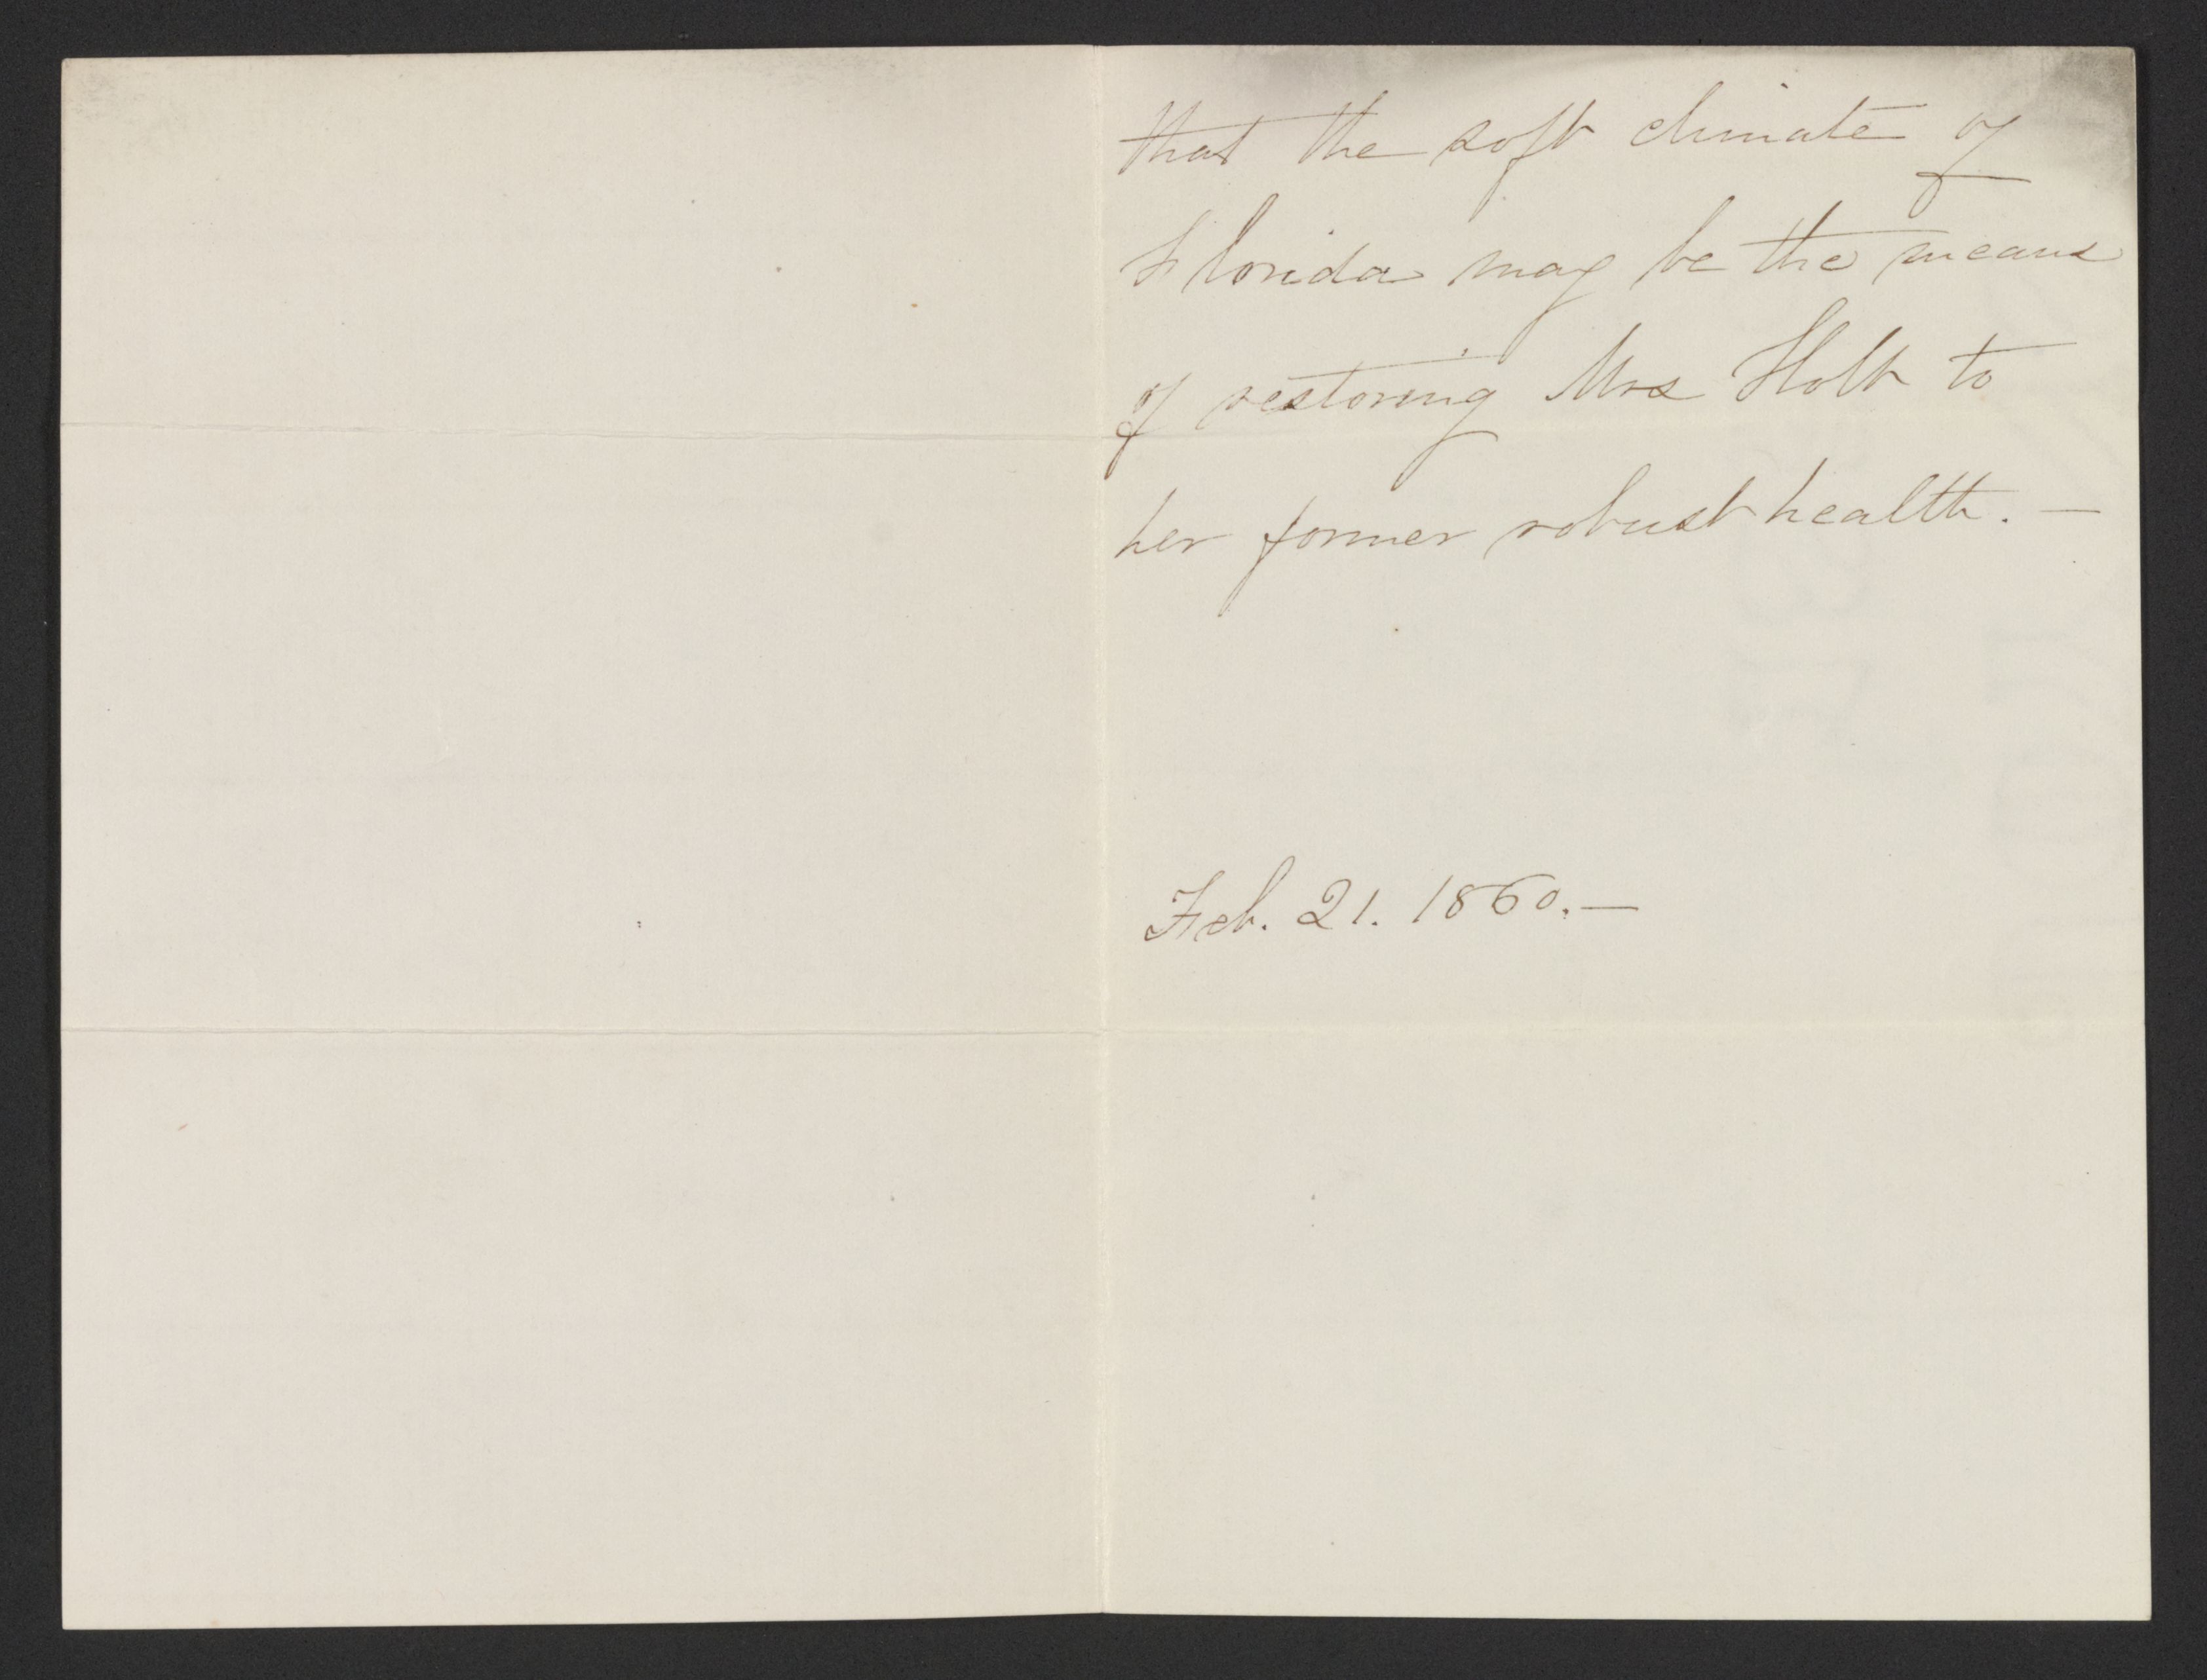 that the soft climate of
Florida may be the means
of restoring Mrs Holt to
her former robust health. —
Feb. 21. 1860. —